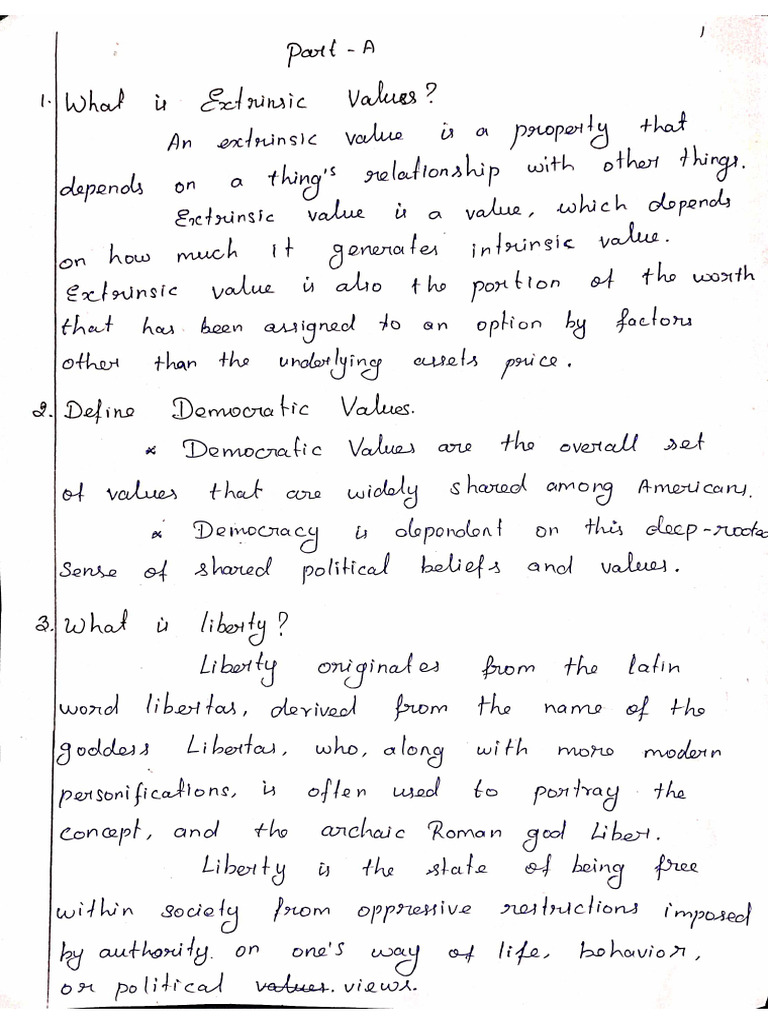 1
Part - A
1. What is Extrinsic Values?
An extrinsic value is a property that
depends on a thing's relationship with other things.
Extrinsic value is a value, which depends
on how much it generates intrinsic value.
Extrinsic value is also the portion of the worth
that has been assigned to an option by factors
other than the underlying assets price.
2. Define Democratic Values.
* Democratic Values are the overall set
of values that are widely shared among Americans.
* Democracy is dependent on this deep-rooted
sense of shared political beliefs and values.
3. What is liberty?
Liberty originates from the latin
word libertas, derived from the name of the
goddess Libertas, who, along with more modern
personifications, is often used to portray the
concept, and the archaic Roman god Liber.
Liberty is the state of being free
within society from oppressive restrictions imposed
by authority. on one's way of life, behavior,
or political values. views.